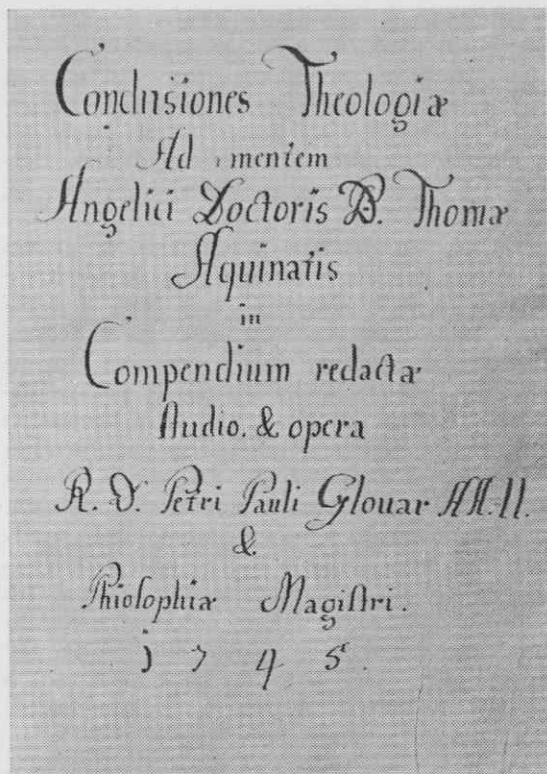 Conclusiones Theologiæ
Ad mentem
Angelici Doctoris D. Thomæ
Aquinatis
in
Compendium redactæ
studio. & opera
R. D. Petri Pauli Glouar AA. ll.
&.
Phiosophiæ Magistri.
1745.